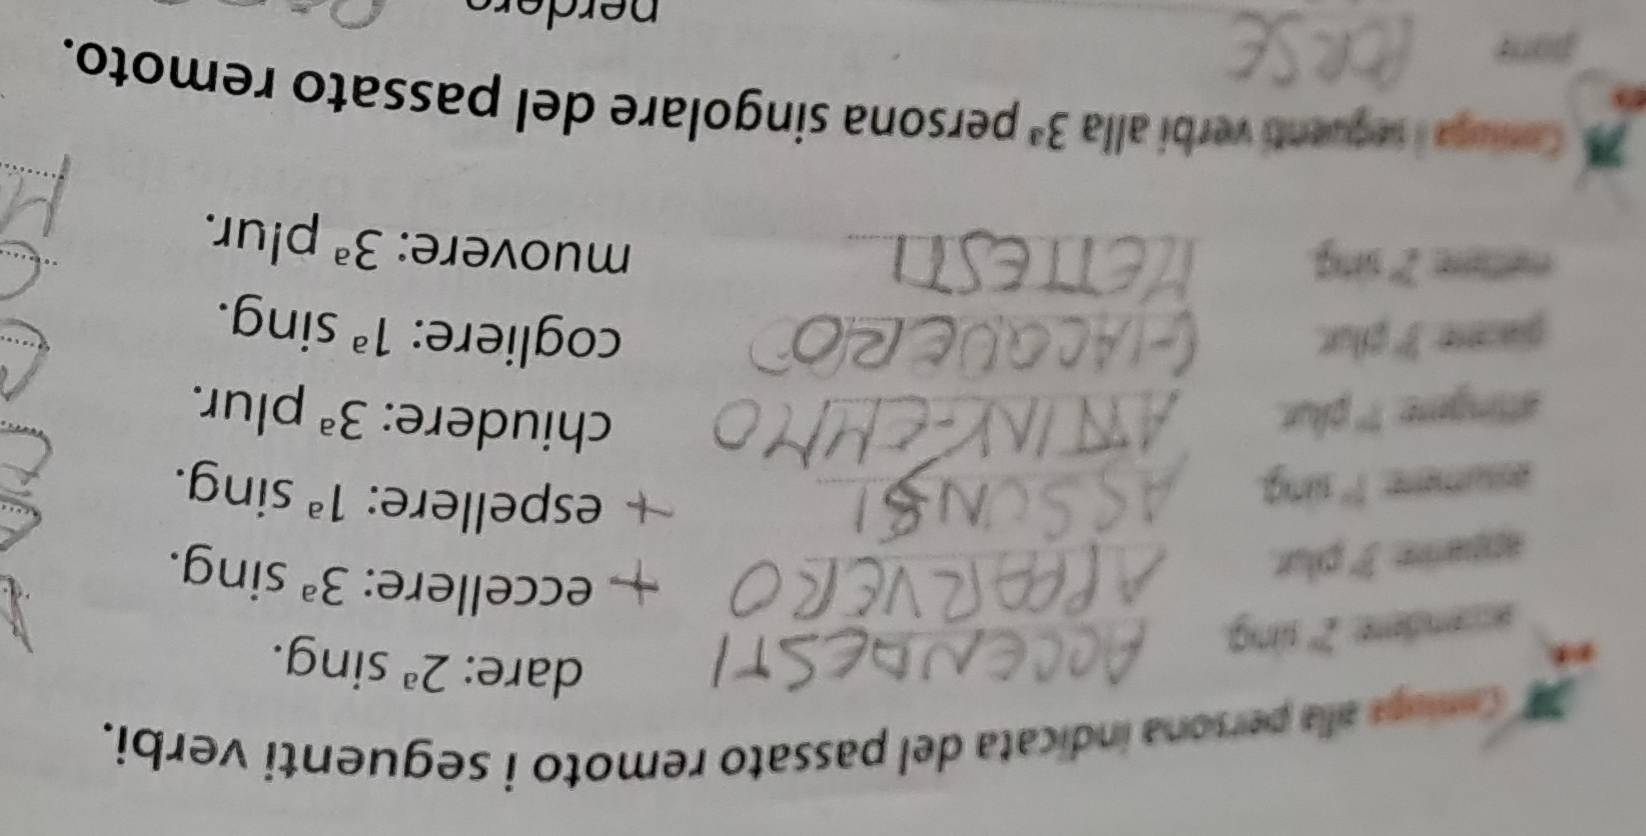 Coniuga alla persona indicata del passato remoto i seguenti verbi.
accendere: 2ª sing. ACCENDESTI dare: 2ª sing.
apparire: 3ª plur. APPARVERO + eccellere: 3ª sing.
assumere: 1ª sing. ASSUNSI + espellere: 1ª sing.
attingere: 1ª plur. ATTINGEMMO chiudere: 3ª plur.
giacere: 3ª plur. GIACQUERO cogliere: 1ª sing.
mettere: 2ª sing. METTESTI muovere: 3ª plur.
Coniuga i seguenti verbi alla 3ª persona singolare del passato remoto.
PORSE perdere